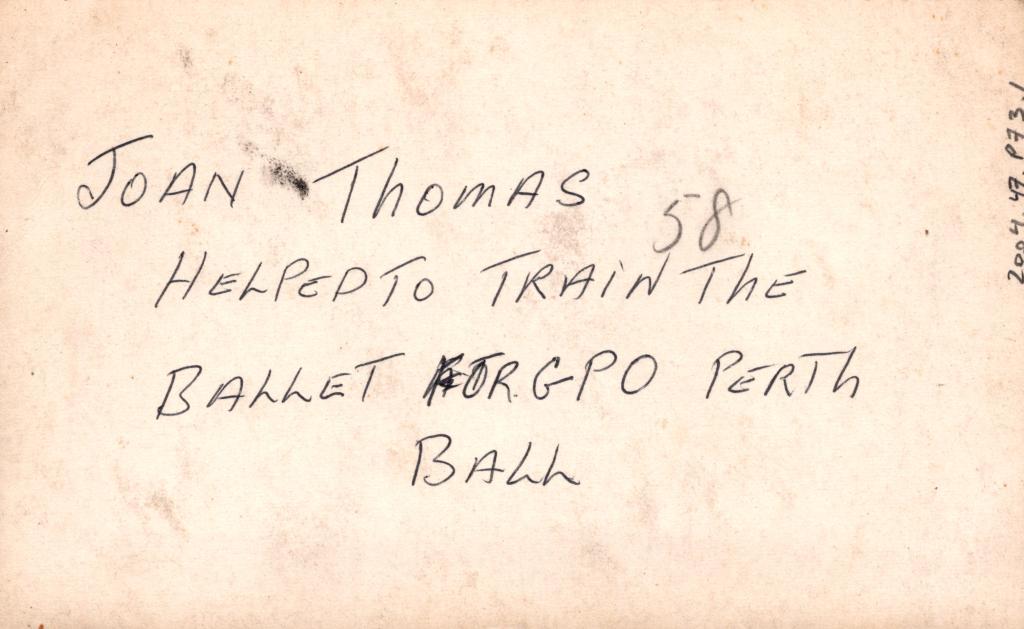 JOAN THOMAS
58
HELPED TO TRAIN THE
BALLET FOR GPO PERTH
BALL
2004.47.P73.1